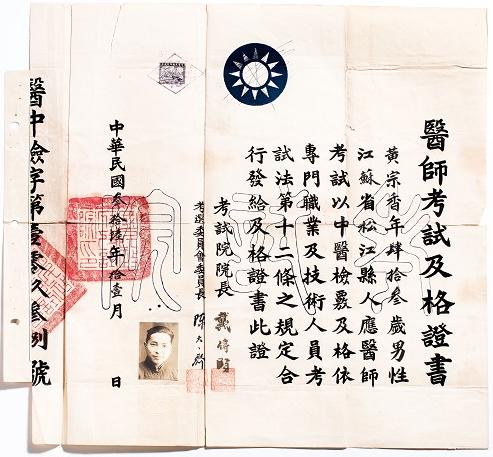 醫師考試及格證書
黃宗香年肆拾叁歲男性
江蘇省松江縣人應醫師
考試以中醫檢覈及格依
專門職業及技術人員考
試法第十二條之規定合
行發給及格證書此證
考試院院長 戴傳賢
考選委員會委員長 陳大齊
中華民國叁拾陸年拾壹月 日
醫中檢字第壹零久叁捌號